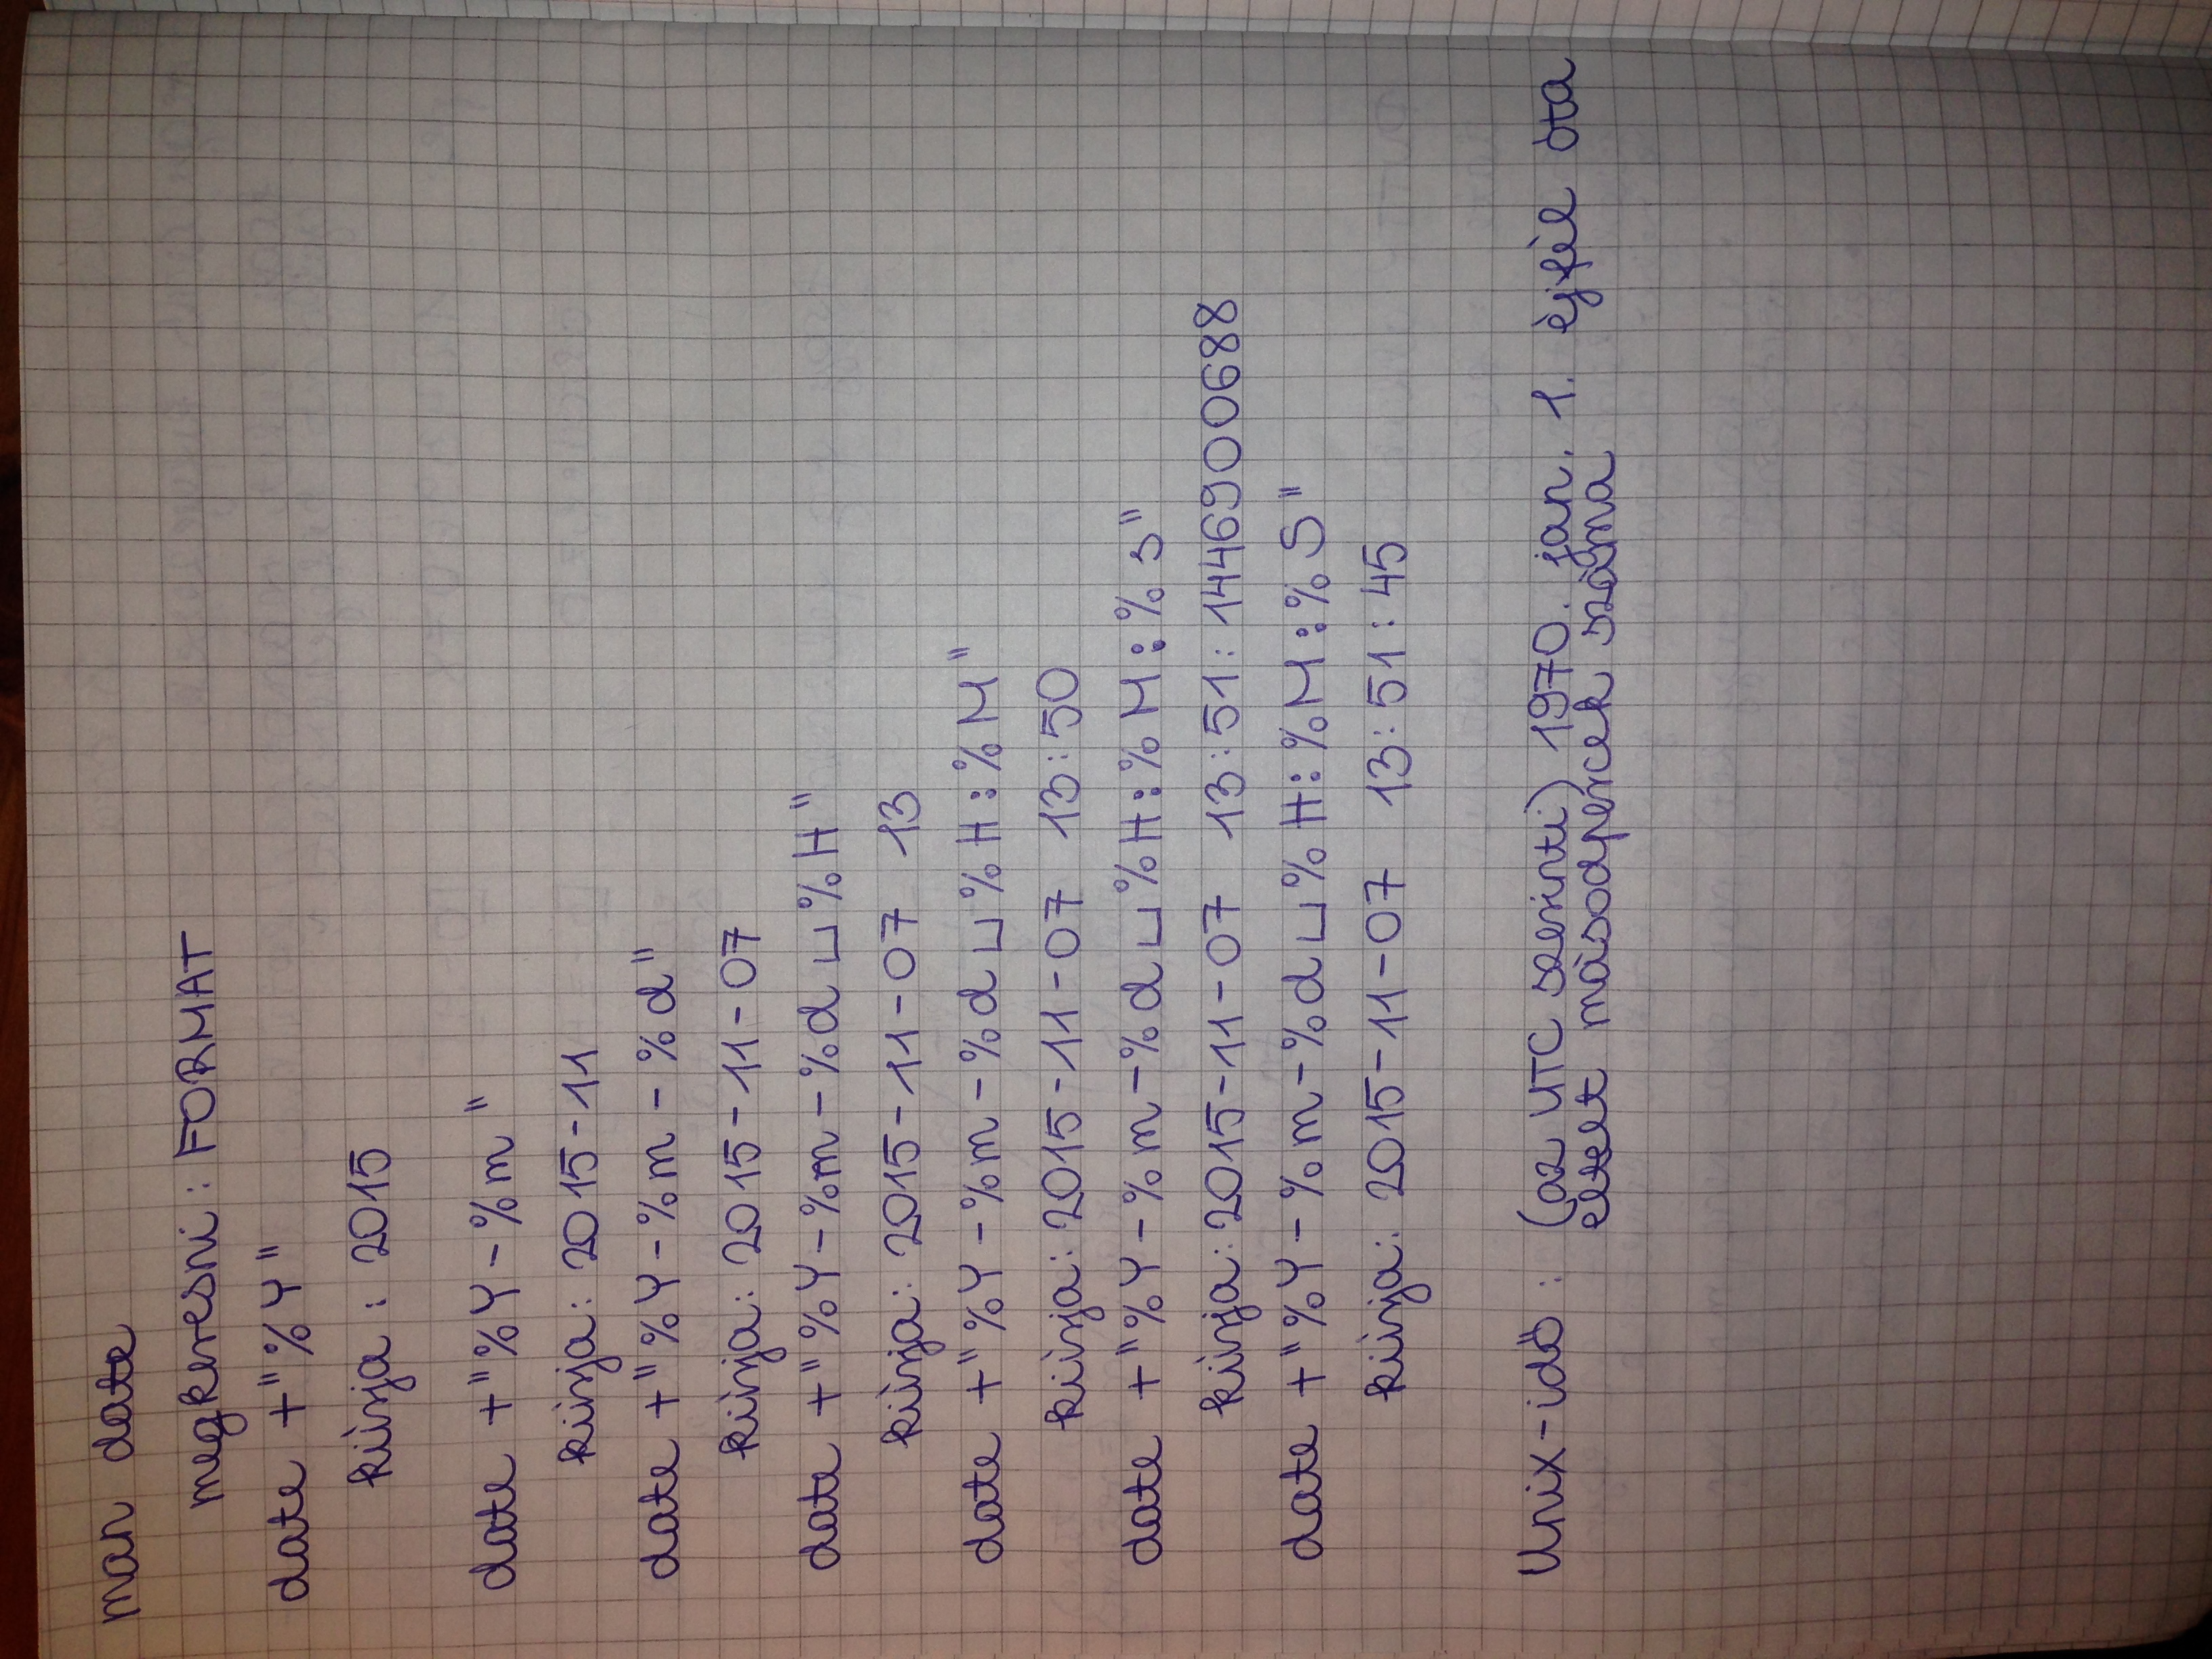 man date
megkeresni: FORMAT
date +"%Y"
kiírja: 2015
date +"%Y-%m"
kiírja: 2015-11
date +"%Y-%m-%d"
kiírja: 2015-11-07
date +"%Y-%m-%d␣%H"
kiírja: 2015-11-07 13
date +"%Y-%m-%d␣%H:%M"
kiírja: 2015-11-07 13:50
date +"%Y-%m-%d␣%H:%M:%s"
kiírja: 2015-11-07 13:51:1446900688
date +"%Y-%m-%d␣%H:%M:%S"
kiírja: 2015-11-07 13:51:45
Unix-idő: (az UTC szerinti) 1970. jan. 1. éjfél óta
eltelt másodpercek száma